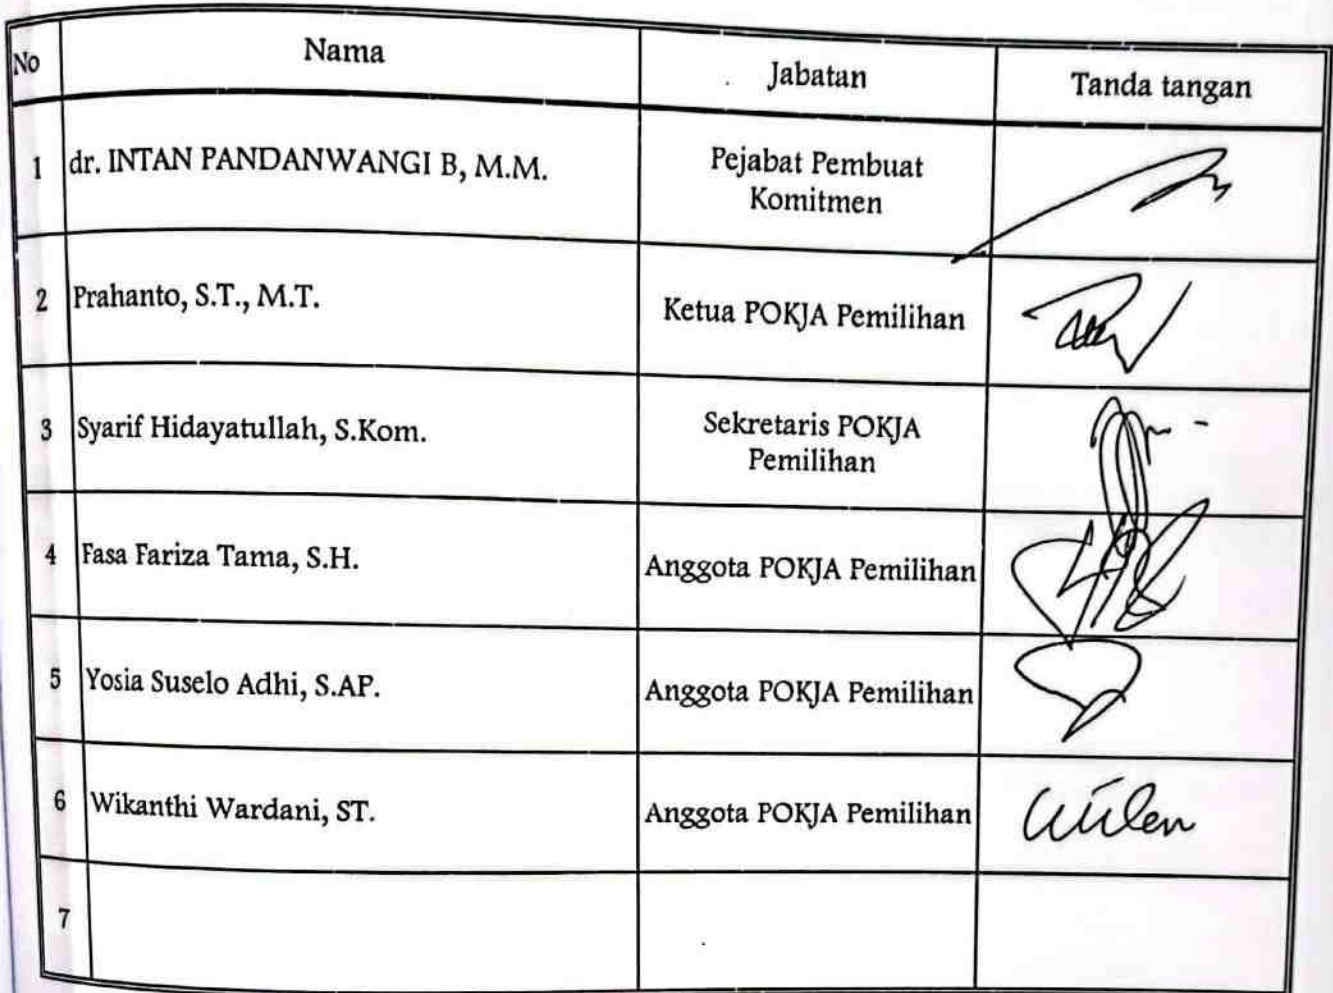 No Nama Jabatan Tanda tangan
1 dr. INTAN PANDANWANGI B, M.M. Pejabat Pembuat
Komitmen
2 Prahanto, S.T., M.T. Ketua POKJA Pemilihan
3 Syarif Hidayatullah, S.Kom. Sekretaris POKJA
Pemilihan
4 Fasa Fariza Tama, S.H. Anggota POKJA Pemilihan
5 Yosia Suselo Adhi, S.AP. Anggota POKJA Pemilihan
6 Wikanthi Wardani, ST. Anggota POKJA Pemilihan
7